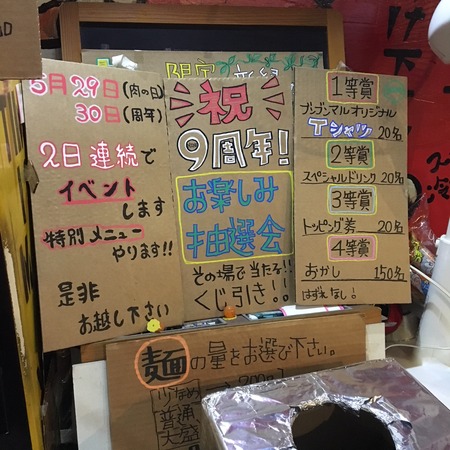 5月29日(肉の日)
30日(周年)
2日連続で
イベント
します
特別メニュー
やります!!
是非
お越し下さい
祝
9周年!
お楽しみ
抽選会
その場で当たる!!
くじ引き!!
1等賞
ブンブンマルオリジナル
Tシャツ 20名
2等賞
スペシャルドリンク 20名
3等賞
トッピング券 20名
4等賞
おかし 150名
はずれなし!
麺の量をお選び下さい。
少なめ
普通
大盛